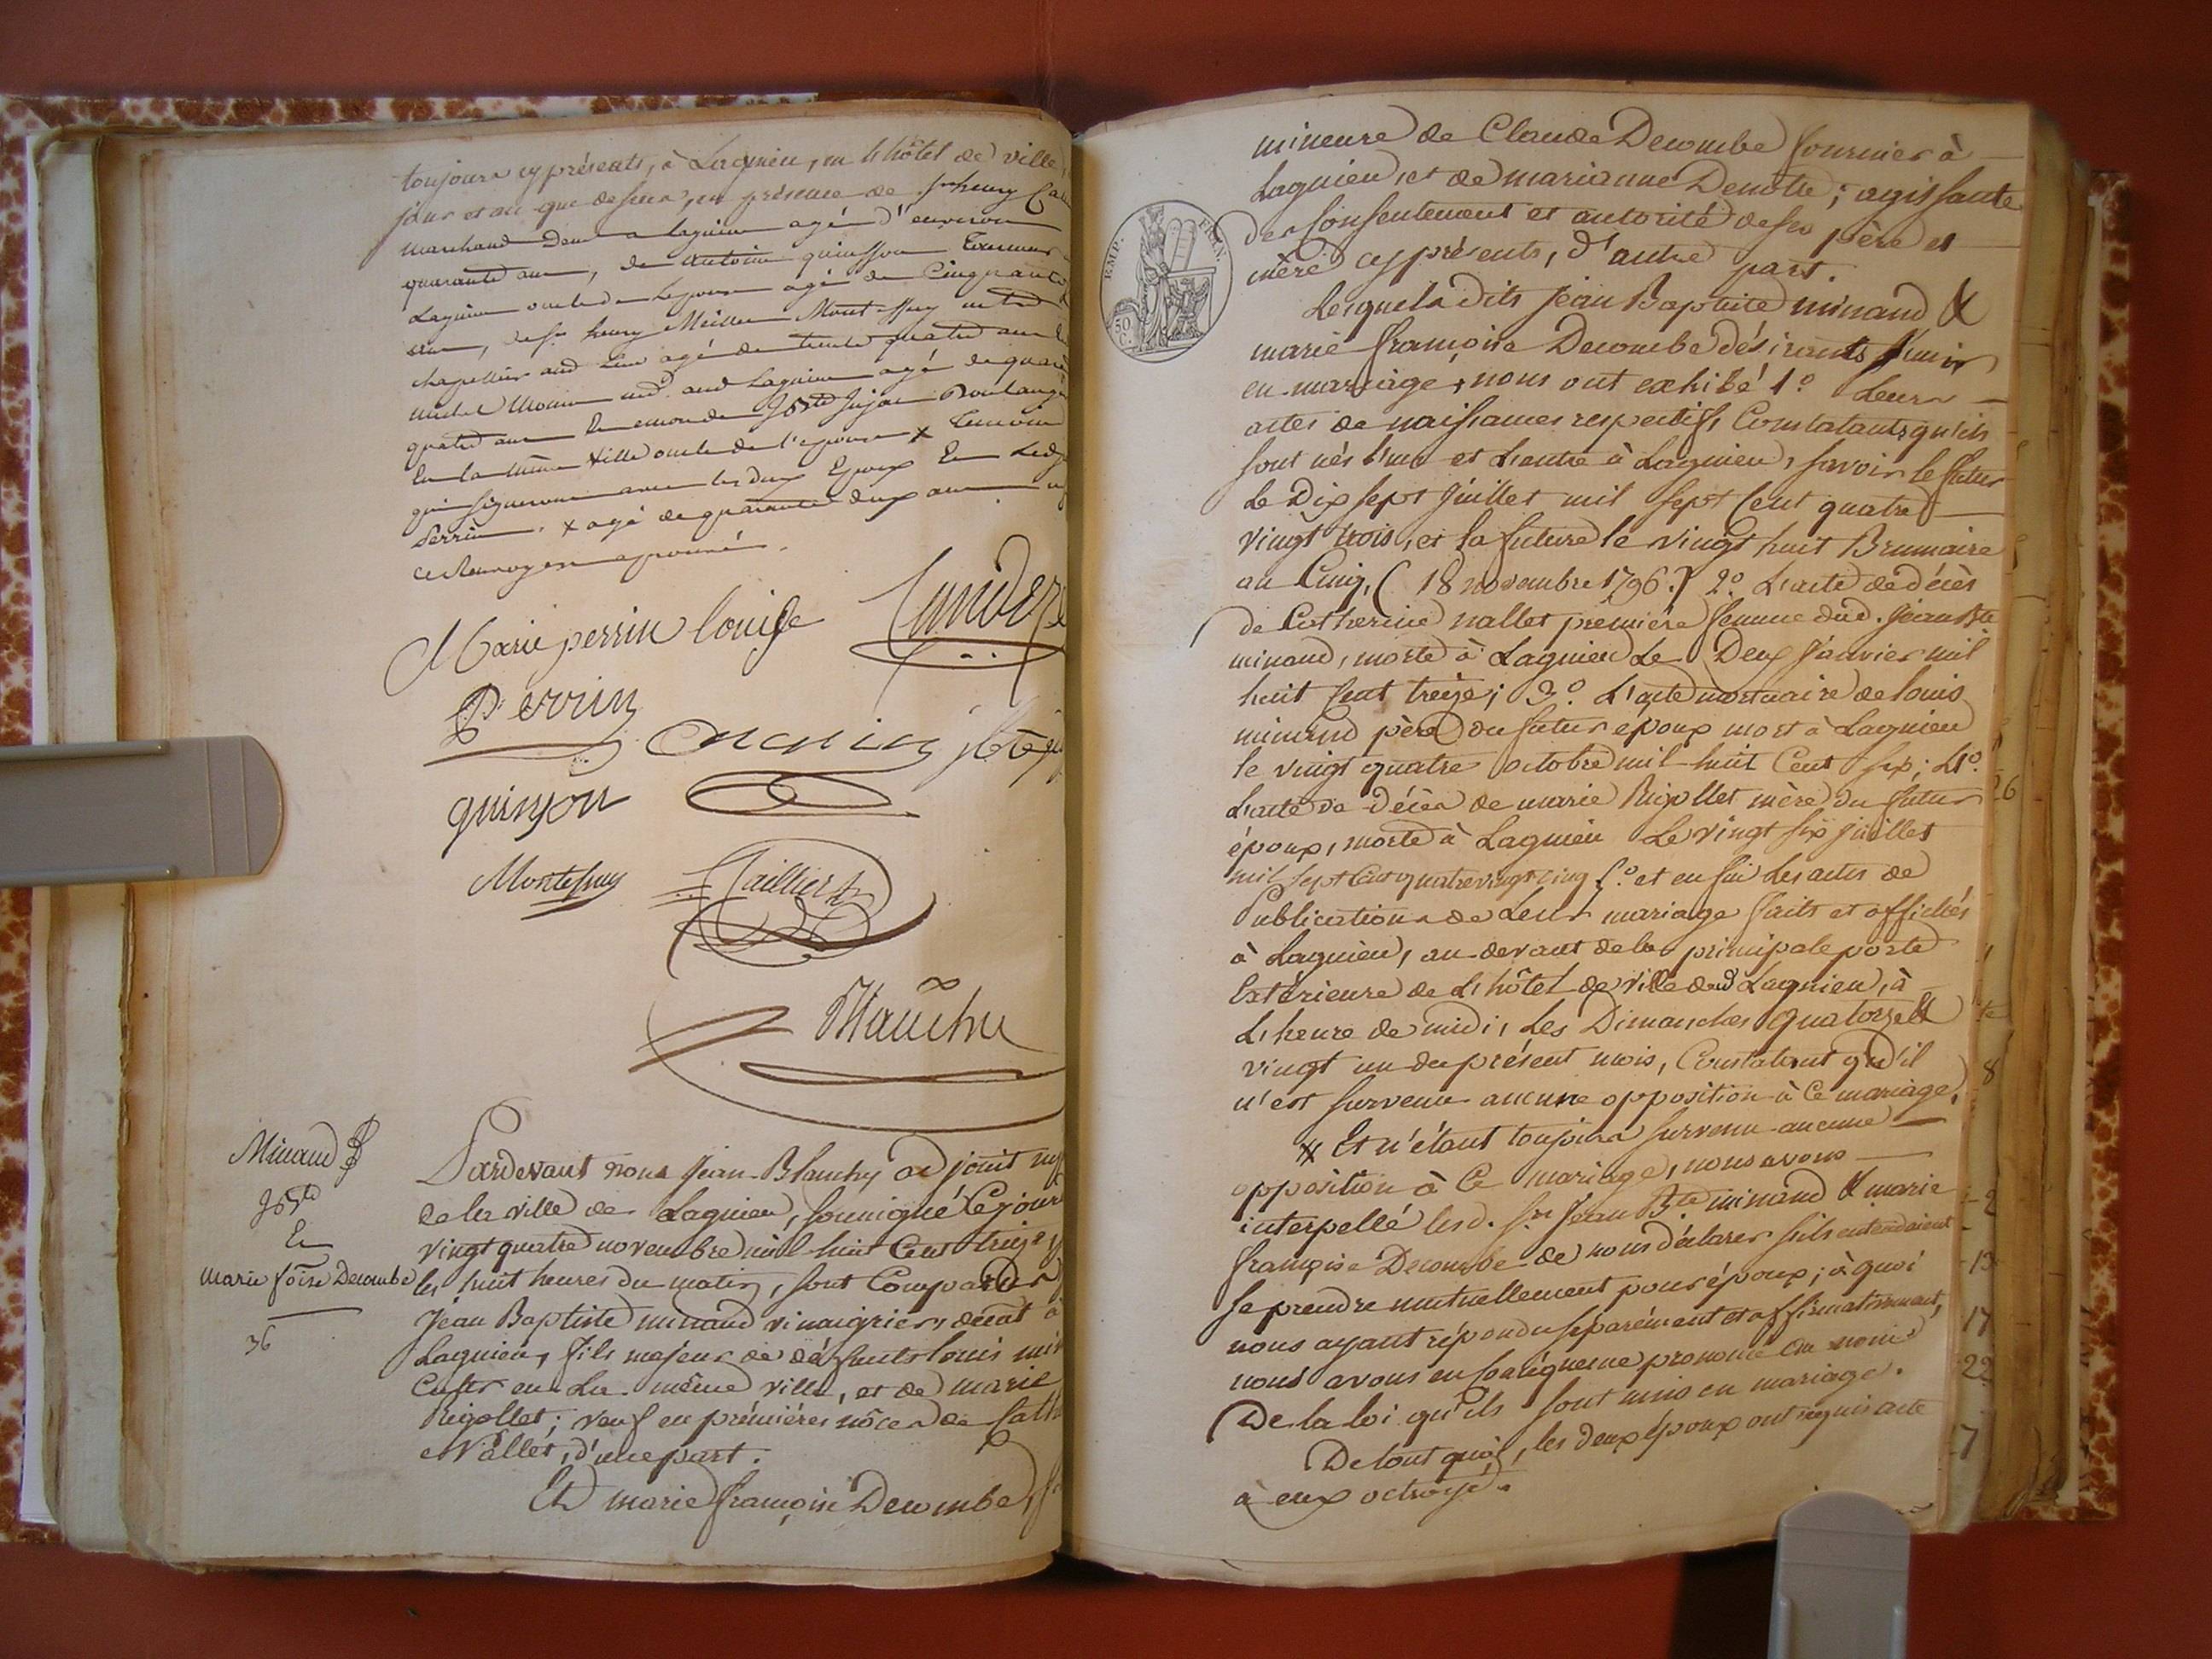 toujours cy présents, à Lagnieu, en l'hôtel de ville,
jour et an que dessus, en présence de Sr henry
marchand dem a Lagnieu agé d'environ
quarante ans, de Antoine quinsson
Lagnieu oncle de Lepouse agé de Cinquante
ans, de Sr henry Meillu Mont-ffuy
chapellier aud Lieu agé de trente quatre ans
michel Monin md aud Lagnieu agé de quara
quatre ans Boulanger
En la même Ville oncle de l'epouse x temoin
qui signeront avec les deux Epoux Et Led
Perrin. x agé de quarante deux ans
ce Renvoy approuvé.
Marie perrin louise
Perrin
Monin
quinson
Montefuy
Jaillier
Blanchy
Minaud
JBte
Et
marie foise Decombe
36
Pardevant nous Jean-Blanchy adjoint
de la ville de Lagnieu, soussigné Cejour
vingt quatre novembre mil huit Cent treize,
les huit heures du matin, sont Comparus
Jean Baptiste minaud vinaigrier, demt à
Lagnieu, fils majeur de défunts louis min
Cultr en La même ville, et de marie
Rigollet; veuf en prémiéres nôces de Cath
Nallet, d'une part.
Et marie françoise Decombe,
mineure de Claude Decombe fournier à
Lagnieu, et de marianne Denotte; agissante
du Consentement et autorité de ses père et
mère cy présents, d'autre part.
EMP. FRAN.
50 C.
Lesquels dits Jean Baptiste minaud &
marie françoise Decombe désirants s'unir
en mariage, nous ont exhibé 1.° Leurs
actes de naissances respectifs, Constatants qu'ils
sont nés l'un et L'autre à Lagnieu, savoir le futur
Le Dix sept Juillet mil sept Cent quatre
vingt trois, et la future le vingt huit Brumaire
an Cinq, (18 novembre 1796.) 2.° L'acte de décès
de Catherine nallet première femme dud. Jean Bte
minaud, morte à Lagnieu Le Deux Janvier mil
huit Cent treize; 3.° L'acte mortuaire de louis
minaud père du futur epoux mort à Lagnieu
le vingt quatre octobre mil huit Cent six; 4.°
L'acte de décès de marie Rigollet mère du futur
époux, morte à Lagnieu Le vingt six juillet
mil sept Cent quatre vingt cinq 5.° et enfin Les actes de
Publications de Leur mariage faits et affichés
à Lagnieu, au-devant de la principale porte
Extérieure de L'hôtel de Ville dud Lagnieu, à
L'heure de midi, Les Dimanches quatorze &
vingt un du présent mois, Constatant qu'il
n'est survenu aucune opposition à Ce mariage,
Et n'étant toujours survenu aucune
opposition à Ce mariage, nous avons
interpellé lesd. Sr Jean Bte minaud & marie
françoise Decombe de nous déclarer s'ils entendaient
se prendre mutuellement pour époux; à quoi
nous ayant répondu séparément et affirmativement,
nous avons en Conséquence prononcé au nom
De la loi qu'ils sont unis en mariage.
De tout quoi, les deux époux ont requis acte
à eux octroyé.
26
8
2
13
17
22
7